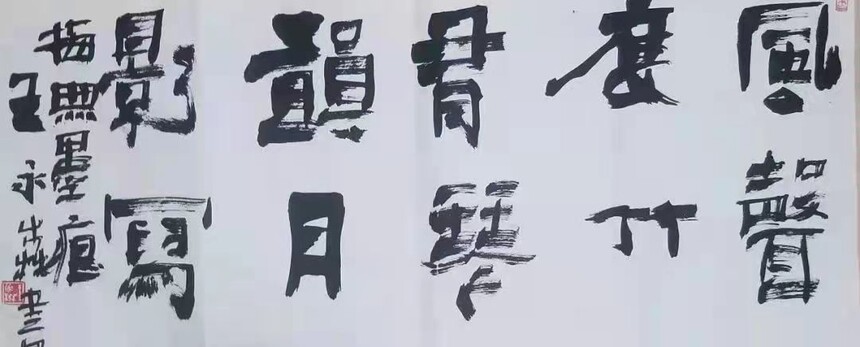 風聲
度竹
有琴
韻月
影寫
梅無墨痕
王永